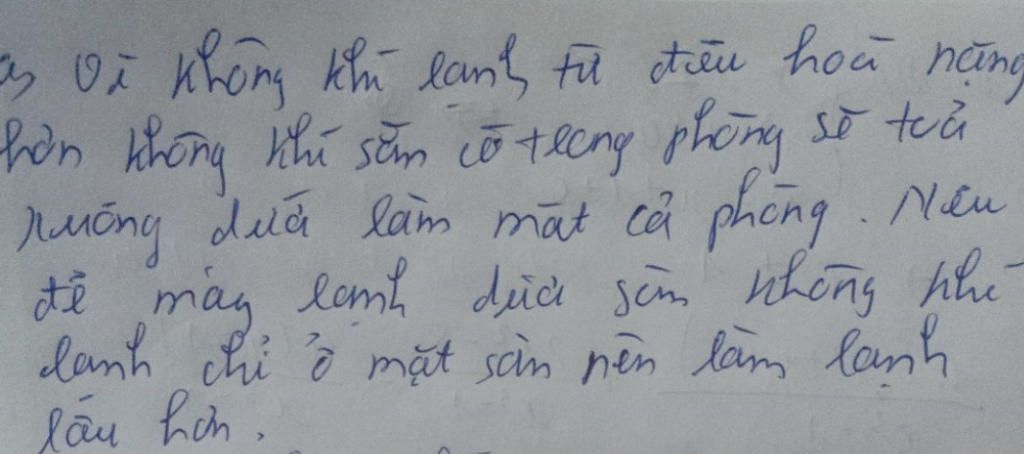 a, Vì không khí lạnh từ điều hoà nặng
hơn không khí sẵn có trong phòng sẽ toả
xuống dưới làm mát cả phòng. Nếu
để máy lạnh dưới sàn không khí
lạnh chỉ ở mặt sàn nên làm lạnh
lâu hơn.